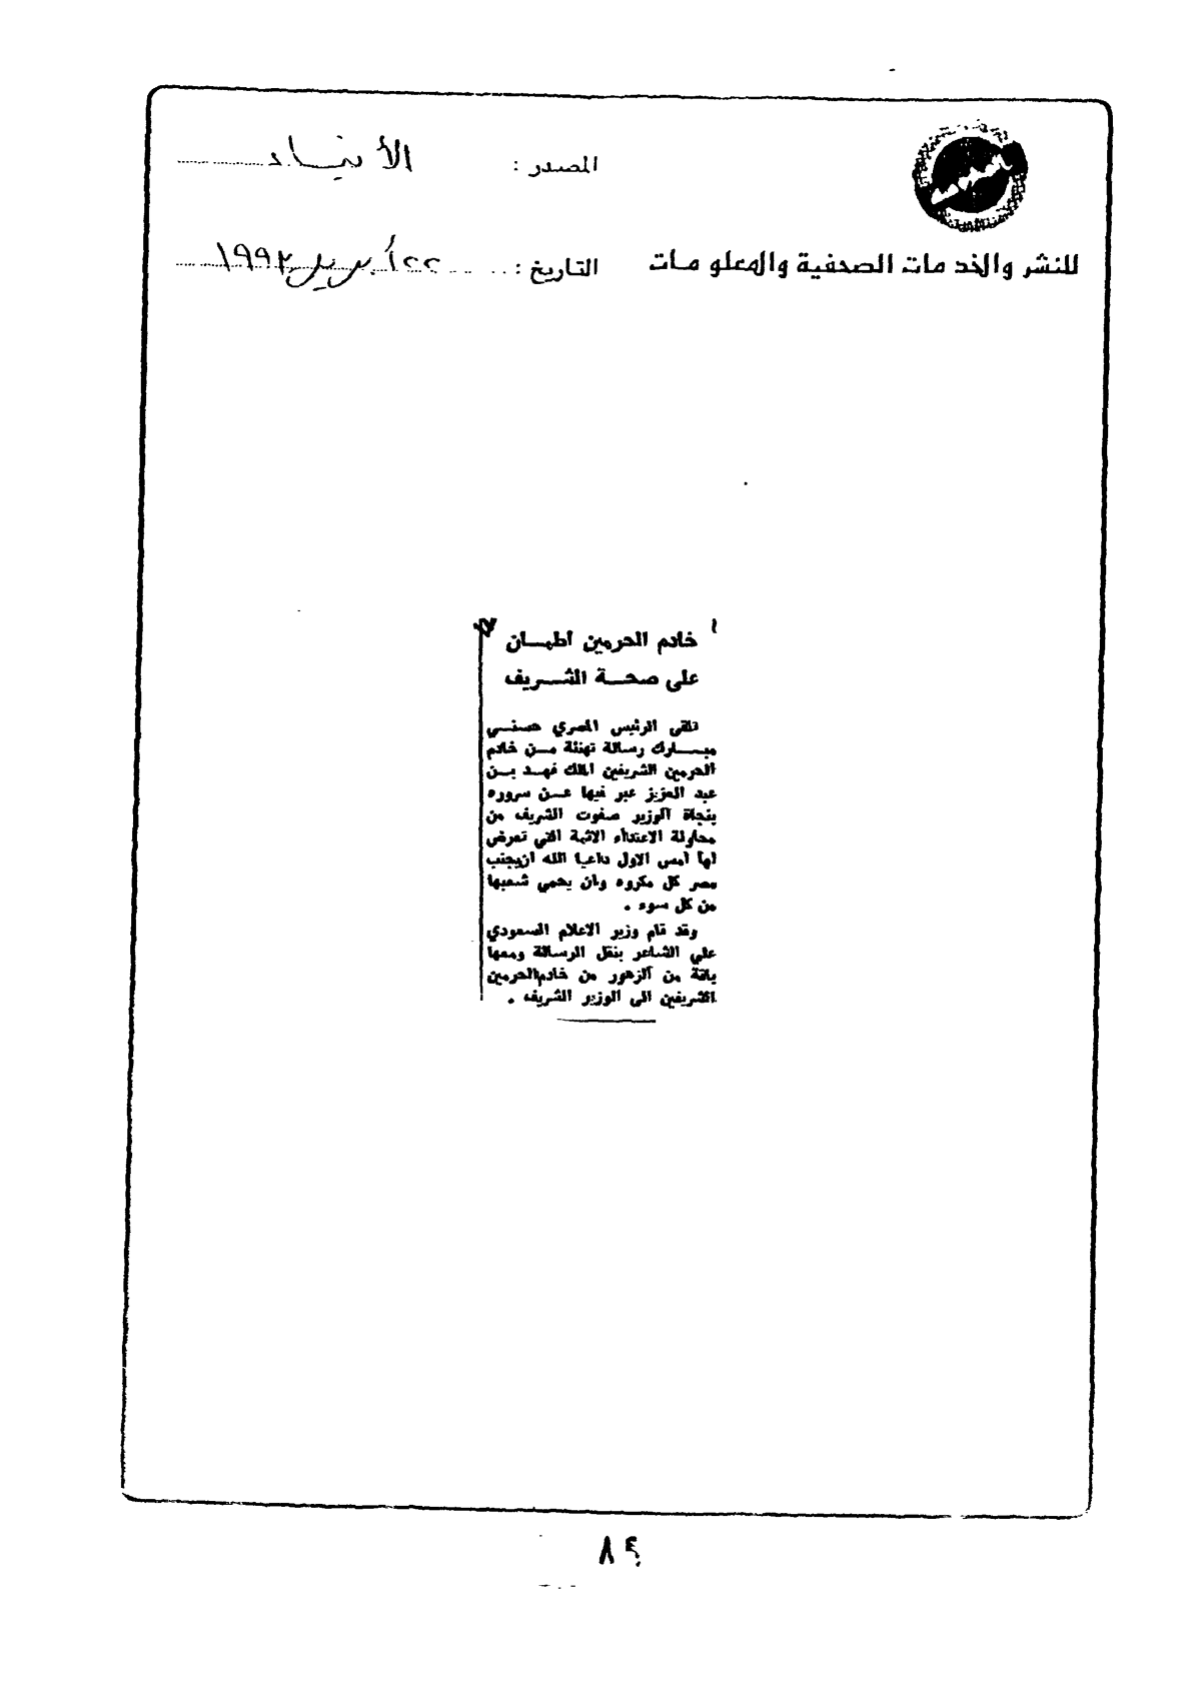 المصدر : الأنباء
للنشر والخدمات الصحفية والمعلومات
التاريخ : ٢٢ أبريل ١٩٩٣
خادم الحرمين اطمان
على صحة الشريف
تلقى الرئيس المصري حسني
مبارك رسالة تهنئة من خادم
الحرمين الشريفين الملك فهد بن
عبد العزيز عبر فيها عن سروره
بنجاة الوزير صفوت الشريف من
محاولة الاعتداء الاثمة التي تعرض
لها امس الاول داعيا الله ان يجنب
مصر كل مكروه وان يحمي شعبها
من كل سوء .
وقد قام وزير الاعلام السعودي
علي الشاعر بنقل الرسالة ومعها
باقة من الزهور من خادم الحرمين
الشريفين الى الوزير الشريف .